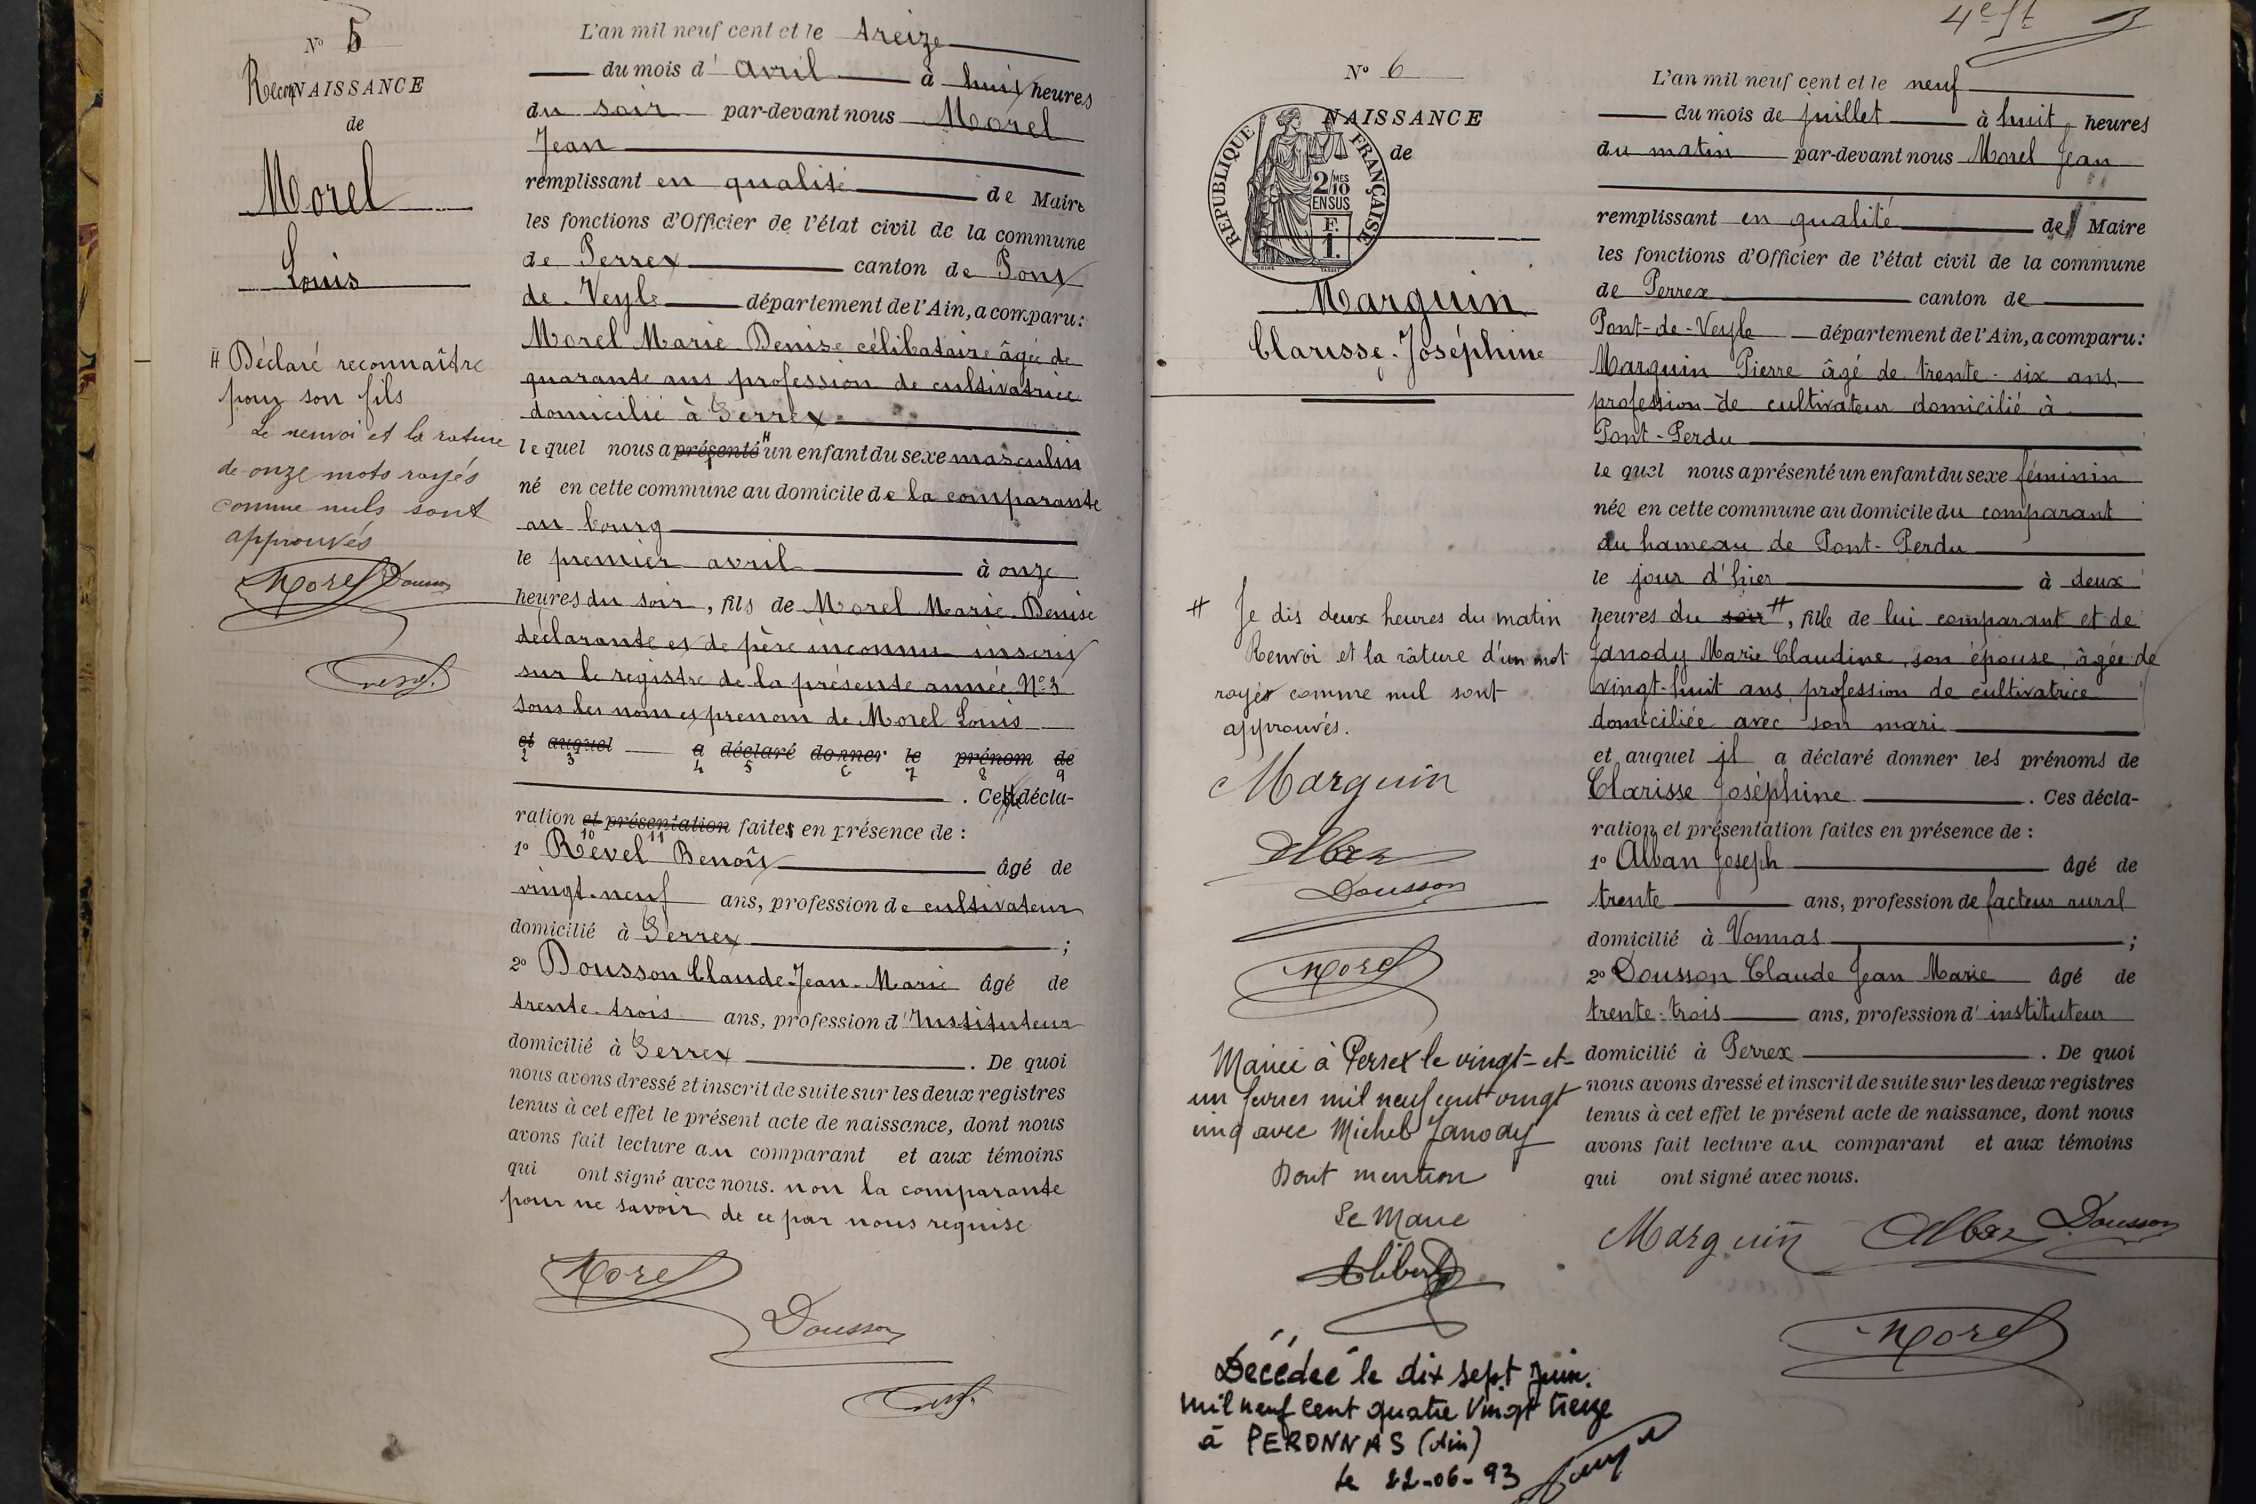 N° 5
ReconNAISSANCE
de
Morel
Louis
# Déclaré reconnaître
pour son fils
Le renvoi et la rature
de onze mots rayés
comme nuls sont
approuvés
Morel Dousson
L'an mil neuf cent et le treize
du mois d' avril à huit heures
du soir par-devant nous Morel
Jean
remplissant en qualité de Maire
les fonctions d'Officier de l'état civil de la commune
de Perrex canton de Pont
de Veyle département de l'Ain, a comparu:
Morel Marie Denise célibataire âgée de
quarante ans profession de cultivatrice
domicilié à Perrex
lequel nous a présenté # un enfant du sexe masculin
né en cette commune au domicile de la comparante
au bourg
le premier avril à onze
heures du soir, fils de Morel Marie Denise
déclarante et de père inconnu inscrit
sur le registre de la présente année N° 3
sous les nom et prenom de Morel Louis
et auquel a déclaré donner le prénom de
2 3 4 5 6 7 8 9
. Cette décla-
ration et présentation faites en présence de :
10 11
1° Revel Benoît âgé de
vingt-neuf ans, profession de cultivateur
domicilié à Perrex ;
2° Dousson Claude-Jean-Marie âgé de
trente-trois ans, profession d'Instituteur
domicilié à Perrex . De quoi
nous avons dressé et inscrit de suite sur les deux registres
tenus à cet effet le présent acte de naissance, dont nous
avons fait lecture au comparant et aux témoins
qui ont signé avec nous. non la comparante
pour ne savoir de ce par nous requise
Morel
Dousson
4e ft
N° 6
NAISSANCE
de
RÉPUBLIQUE FRANÇAISE
2/10 MES
EN SUS
F.
1.
Marguin
Clarisse-Joséphine
# Je dis deux heures du matin
Renvoi et la râture d'un mot
rayés comme nul sont
approuvés.
Marguin
Alban
Dousson
Morel
Mariée à Perrex le vingt-et-
un février mil neuf cent vingt
cinq avec Michel Janody
Dont mention
Le Maire
Décédée le dix sept Juin
mil neuf cent quatre vingt treize
à PERONNAS (Ain)
le 22-06-93
L'an mil neuf cent et le neuf
du mois de juillet à huit heures
du matin par-devant nous Morel Jean
remplissant en qualité de Maire
les fonctions d'Officier de l'état civil de la commune
de Perrex canton de
Pont-de-Veyle département de l'Ain, a comparu:
Marguin Pierre âgé de trente-six ans
profession de cultivateur domicilié à
Pont-Perdu
lequel nous a présenté un enfant du sexe féminin
née en cette commune au domicile du comparant
au hameau de Pont-Perdu
le jour d'hier à deux
heures du soir #, fille de lui comparant et de
Janody Marie Claudine, son épouse, âgée de
vingt-huit ans profession de cultivatrice
domiciliée avec son mari
et auquel il a déclaré donner les prénoms de
Clarisse Joséphine . Ces décla-
ration et présentation faites en présence de :
1° Alban Joseph âgé de
trente ans, profession de facteur rural
domicilié à Vonnas ;
2° Dousson Claude Jean Marie âgé de
trente-trois ans, profession d' instituteur
domicilié à Perrex . De quoi
nous avons dressé et inscrit de suite sur les deux registres
tenus à cet effet le présent acte de naissance, dont nous
avons fait lecture au comparant et aux témoins
qui ont signé avec nous.
Marguin Alban Dousson
Morel